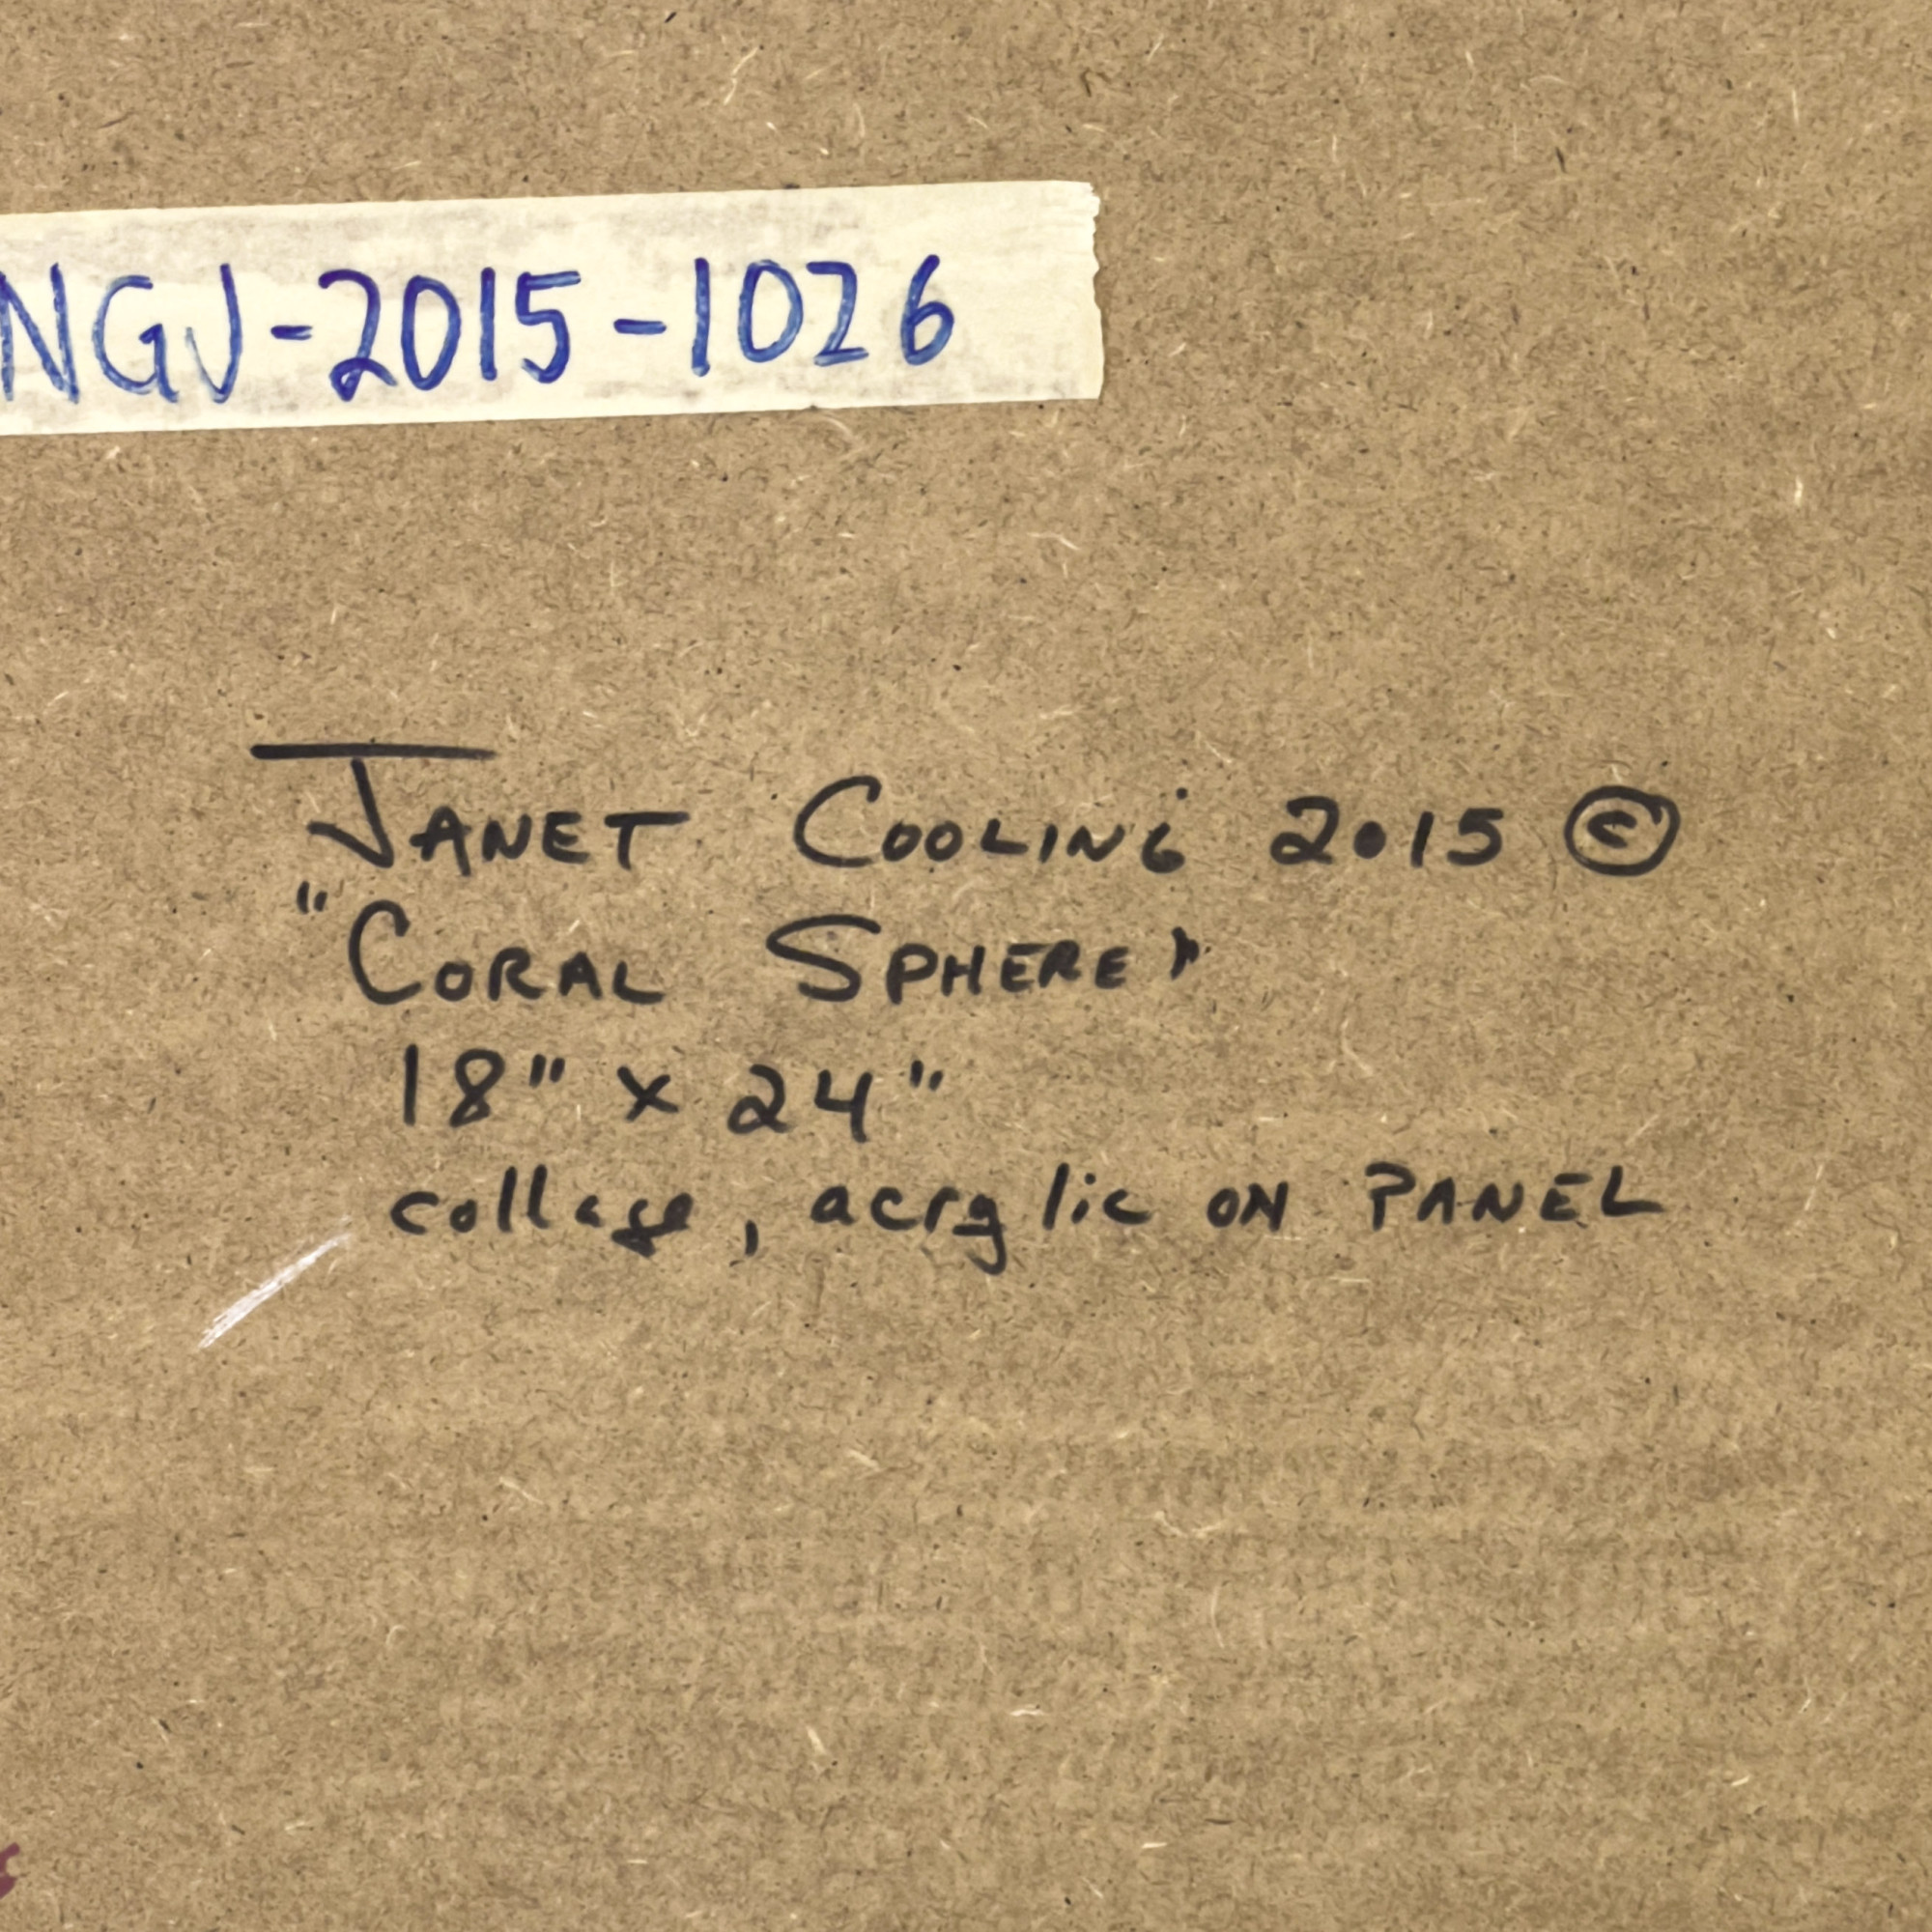 NGJ-2015-1026
JANET COOLING 2015 ©
"CORAL SPHERE"
18" x 24"
collage, acrylic ON PANEL